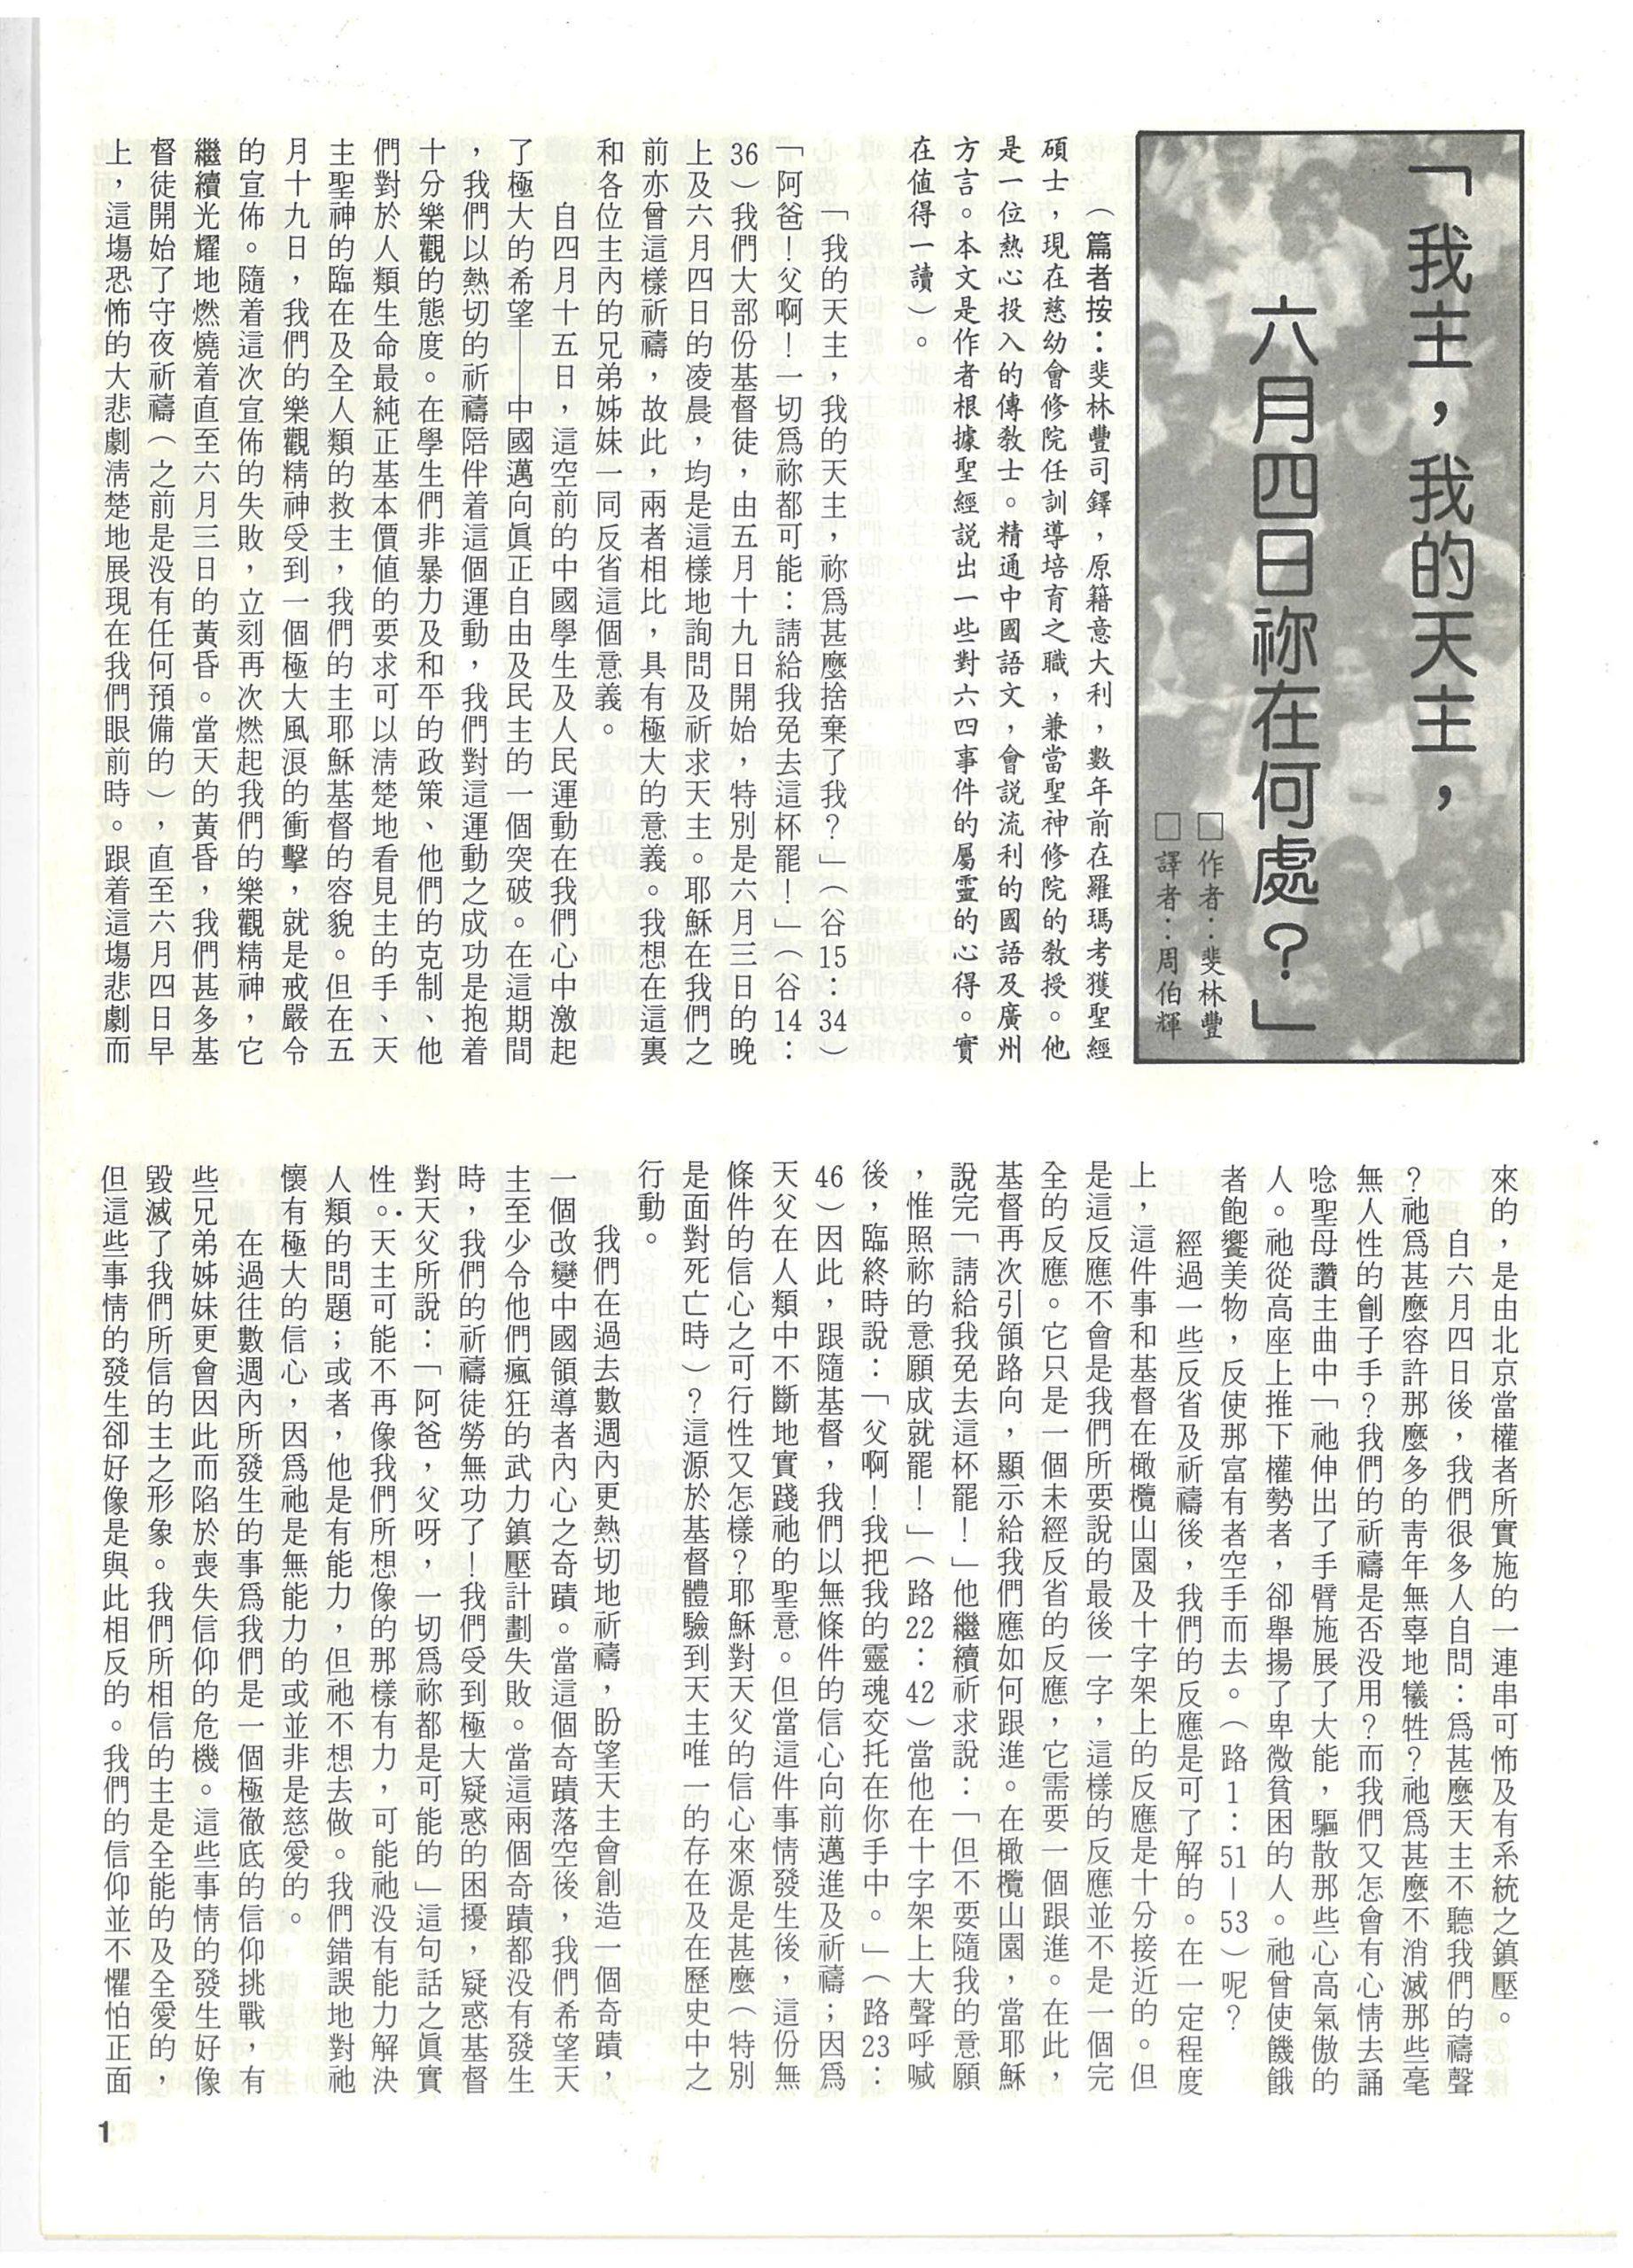 「我主，我的天主，
六月四日祢在何處？」
□作者：斐林豐
□譯者：周伯輝
（篇者按：斐林豐司鐸，原籍意大利，數年前在羅瑪考獲聖經
碩士，現在慈幼會修院任訓導培育之職，兼當聖神修院的教授。他
是一位熱心投入的傳教士。精通中國語文，會說流利的國語及廣州
方言。本文是作者根據聖經說出一些對六四事件的屬靈的心得。實
在值得一讀）。
「我的天主，我的天主，祢爲甚麼捨棄了我？」（谷15：34）
「阿爸！父啊！一切爲祢都可能：請給我免去這杯罷！」（谷14：
36）我們大部份基督徒，由五月十九日開始，特別是六月三日的晚
上及六月四日的凌晨，均是這樣地詢問及祈求天主。耶穌在我們之
前亦曾這樣祈禱，故此，兩者相比，具有極大的意義。我想在這裏
和各位主內的兄弟姊妹一同反省這個意義。
自四月十五日，這空前的中國學生及人民運動在我們心中激起
了極大的希望——中國邁向眞正自由及民主的一個突破。在這期間
，我們以熱切的祈禱陪伴着這個運動，我們對這運動之成功是抱着
十分樂觀的態度。在學生們非暴力及和平的政策、他們的克制、他
們對於人類生命最純正基本價值的要求可以淸楚地看見主的手、天
主聖神的臨在及全人類的救主，我們的主耶穌基督的容貌。但在五
月十九日，我們的樂觀精神受到一個極大風浪的衝擊，就是戒嚴令
的宣佈。隨着這次宣佈的失敗，立刻再次燃起我們的樂觀精神，它
繼續光耀地燃燒着直至六月三日的黃昏。當天的黃昏，我們甚多基
督徒開始了守夜祈禱（之前是没有任何預備的），直至六月四日早
上，這塲恐怖的大悲劇淸楚地展現在我們眼前時。跟着這塲悲劇而
來的，是由北京當權者所實施的一連串可怖及有系統之鎮壓。
自六月四日後，我們很多人自問：爲甚麼天主不聽我們的禱聲
？祂爲甚麼容許那麼多的靑年無辜地犧牲？祂爲甚麼不消滅那些毫
無人性的劊子手？我們的祈禱是否没用？而我們又怎會有心情去誦
唸聖母讚主曲中「祂伸出了手臂施展了大能，驅散那些心高氣傲的
人。祂從高座上推下權勢者，卻舉揚了卑微貧困的人。祂曾使饑餓
者飽饗美物，反使那富有者空手而去。（路1：51－53）呢？
經過一些反省及祈禱後，我們的反應是可了解的。在一定程度
上，這件事和基督在橄欖山園及十字架上的反應是十分接近的。但
是這反應不會是我們所要說的最後一字，這樣的反應並不是一個完
全的反應。它只是一個未經反省的反應，它需要一個跟進。在此，
基督再次引領路向，顯示給我們應如何跟進。在橄欖山園，當耶穌
說完「請給我免去這杯罷！」他繼續祈求說：「但不要隨我的意願
，惟照祢的意願成就罷！」（路22：42）當他在十字架上大聲呼喊
後，臨終時說：「父啊！我把我的靈魂交托在你手中。」（路23：
46）因此，跟隨基督，我們以無條件的信心向前邁進及祈禱；因爲
天父在人類中不斷地實踐祂的聖意。但當這件事情發生後，這份無
條件的信心之可行性又怎樣？耶穌對天父的信心來源是甚麼（特別
是面對死亡時）？這源於基督體驗到天主唯一的存在及在歷史中之
行動。
我們在過去數週內更熱切地祈禱，盼望天主會創造一個奇蹟，
一個改變中國領導者內心之奇蹟。當這個奇蹟落空後，我們希望天
主至少令他們瘋狂的武力鎮壓計劃失敗。當這兩個奇蹟都没有發生
時，我們的祈禱徒勞無功了！我們受到極大疑惑的困擾，疑惑基督
對天父所說：「阿爸，父呀，一切爲祢都是可能的」這句話之眞實
性。天主可能不再像我們所想像的那樣有力，可能祂没有能力解決
人類的問題；或者，他是有能力，但祂不想去做。我們錯誤地對祂
懷有極大的信心，因爲祂是無能力的或並非是慈愛的。
在過往數週內所發生的事爲我們是一個極徹底的信仰挑戰，有
些兄弟姊妹更會因此而陷於喪失信仰的危機。這些事情的發生好像
毀滅了我們所信的主之形象。我們所相信的主是全能的及全愛的，
但這些事情的發生卻好像是與此相反的。我們的信仰並不懼怕正面
1